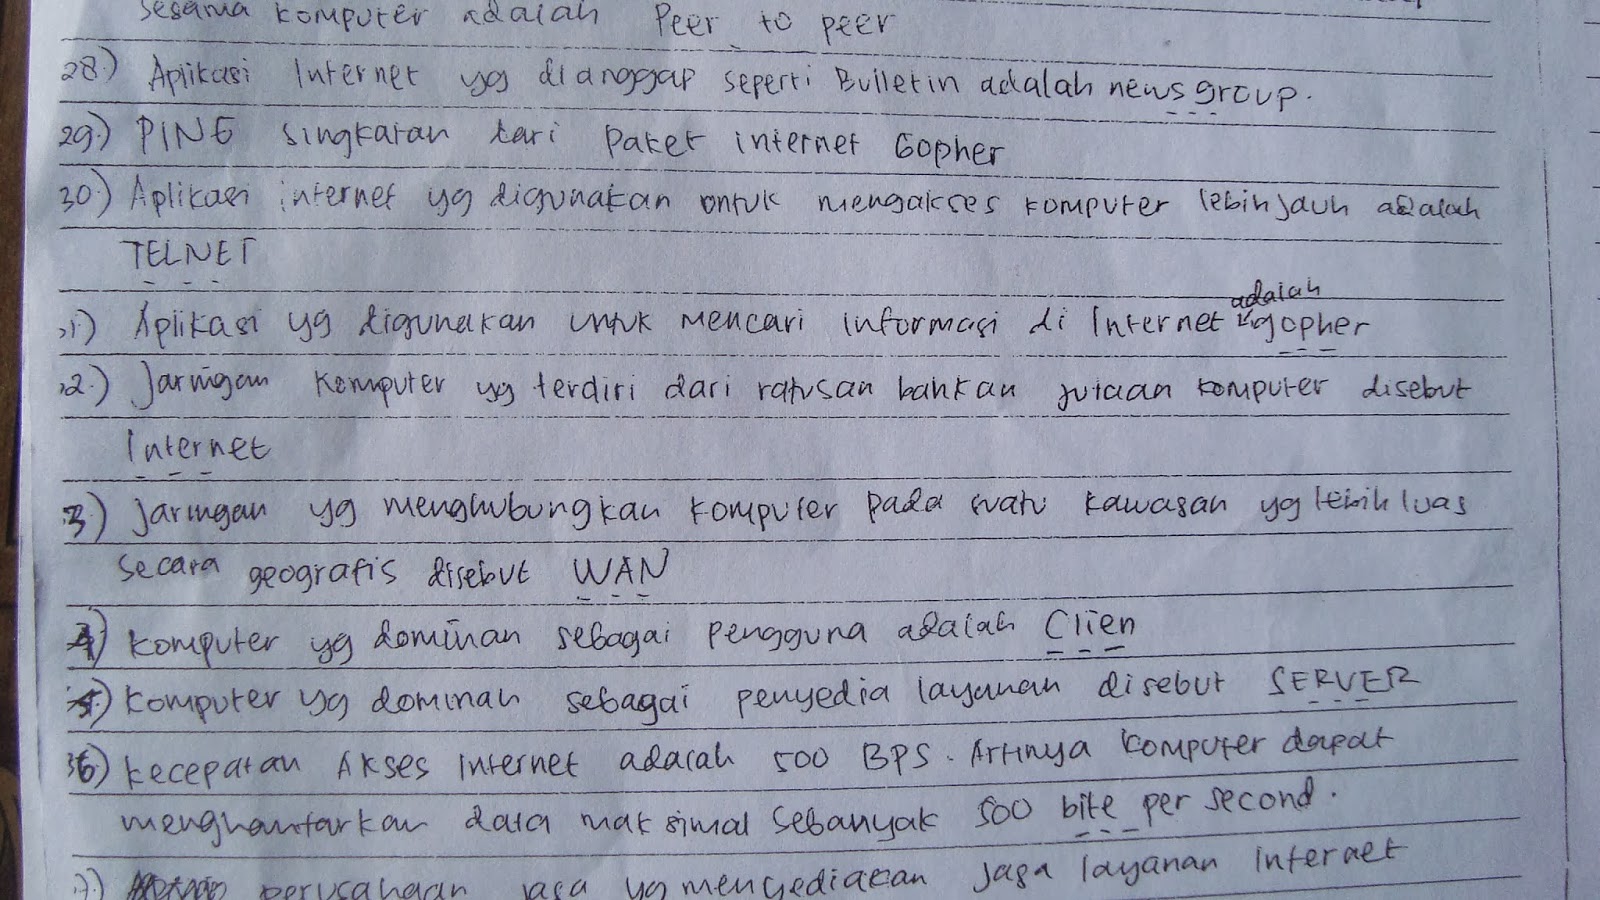 sesama komputer adalah Peer to peer
28.) Aplikasi Internet yg dianggap seperti Bulletin adalah newsgroup.
29.) PING singkatan dari Paket internet Gopher
30.) Aplikasi internet yg digunakan untuk mengakses komputer lebih jauh adalah
TELNET
31.) Aplikasi yg digunakan untuk mencari informasi di Internet adalah gopher
32.) Jaringan komputer yg terdiri dari ratusan bahkan jutaan komputer disebut
Internet
3) Jaringan yg menghubungkan komputer pada suatu kawasan yg lebih luas
secara geografis disebut WAN
4) Komputer yg dominan sebagai pengguna adalah Clien
5) Komputer yg dominan sebagai penyedia layanan disebut SERVER
36) kecepatan Akses Internet adalah 500 BPS. Artinya komputer dapat
menghantarkan data maksimal sebanyak 500 bite per second.
7.) perusahaan jasa yg menyediakan jasa layanan internet